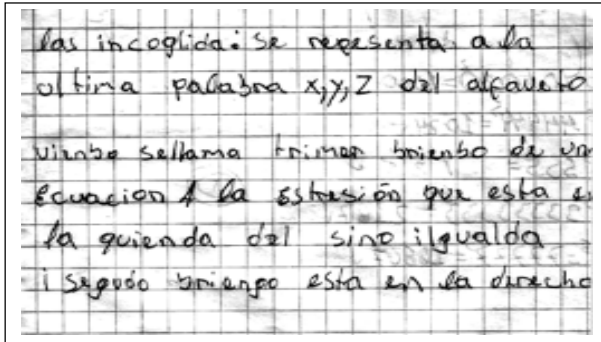 las incoglida: se repesenta a la
ultima palabra x,y,z del alfaveto
vienbo sellama trimer briembo de un
Ecuacion A la estresión que esta e
la quienda del sino ilgualda
i segudo briengo esta en la derecho